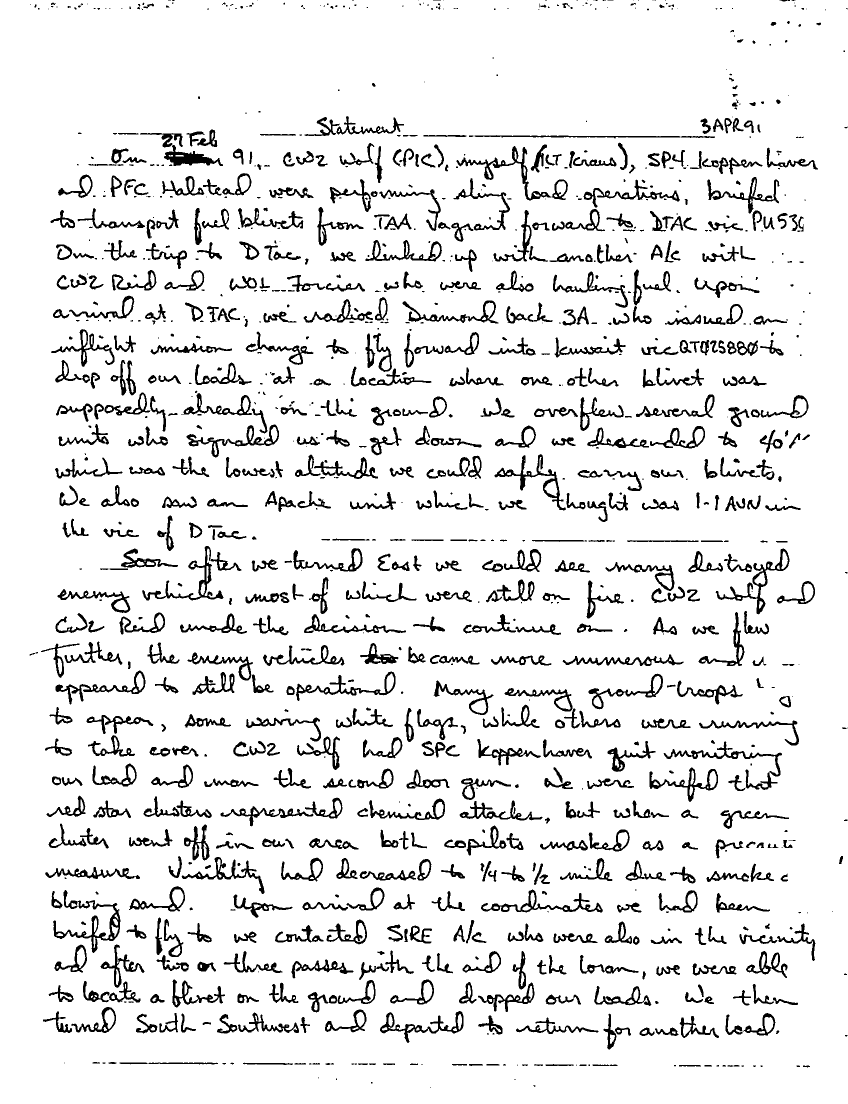 Statement 3APR91
27 Feb
On 91, CW2 Wolf (PIC), myself (1LT Kraus), SP4 Koppenhaver
and PFC Halstead were performing sling load operations, briefed
to transport fuel blivets from TAA Vagrant forward to DTAC vic PU536
On the trip to DTac, we linked up with another A/c with
CW2 Reid and WO1 Forcier who were also hauling fuel. Upon
arrival at DTAC, we radioed Diamond back 3A who issued an
inflight mission change to fly forward into Kuwait vic QT025880 to
drop off our loads at a location where one other blivet was
supposedly already on the ground. We overflew several ground
units who signaled us to get down and we descended to 40'
which was the lowest altitude we could safely carry our blivets.
We also saw an Apache unit which we thought was 1-1 AVN in
the vic of DTac.
Soon after we turned East we could see many destroyed
enemy vehicles, most of which were still on fire. CW2 Wolf and
CW2 Reid made the decision to continue on. As we flew
further, the enemy vehicles became more numerous and
appeared to still be operational. Many enemy ground troops
to appear, some waving white flags, while others were running
to take cover. CW2 Wolf had SPC Koppenhaver quit monitoring
our load and man the second door gun. We were briefed that
red star clusters represented chemical attacks, but when a green
cluster went off in our area both copilots masked as a precauti
measure. Visibility had decreased to 1/4 to 1/2 mile due to smoke
blowing sand. Upon arrival at the coordinates we had been
briefed to fly to we contacted SIRE A/c who were also in the vicinity
and after two or three passes with the aid of the loran, we were able
to locate a blivet on the ground and dropped our loads. We then
turned South-Southwest and departed to return for another load.